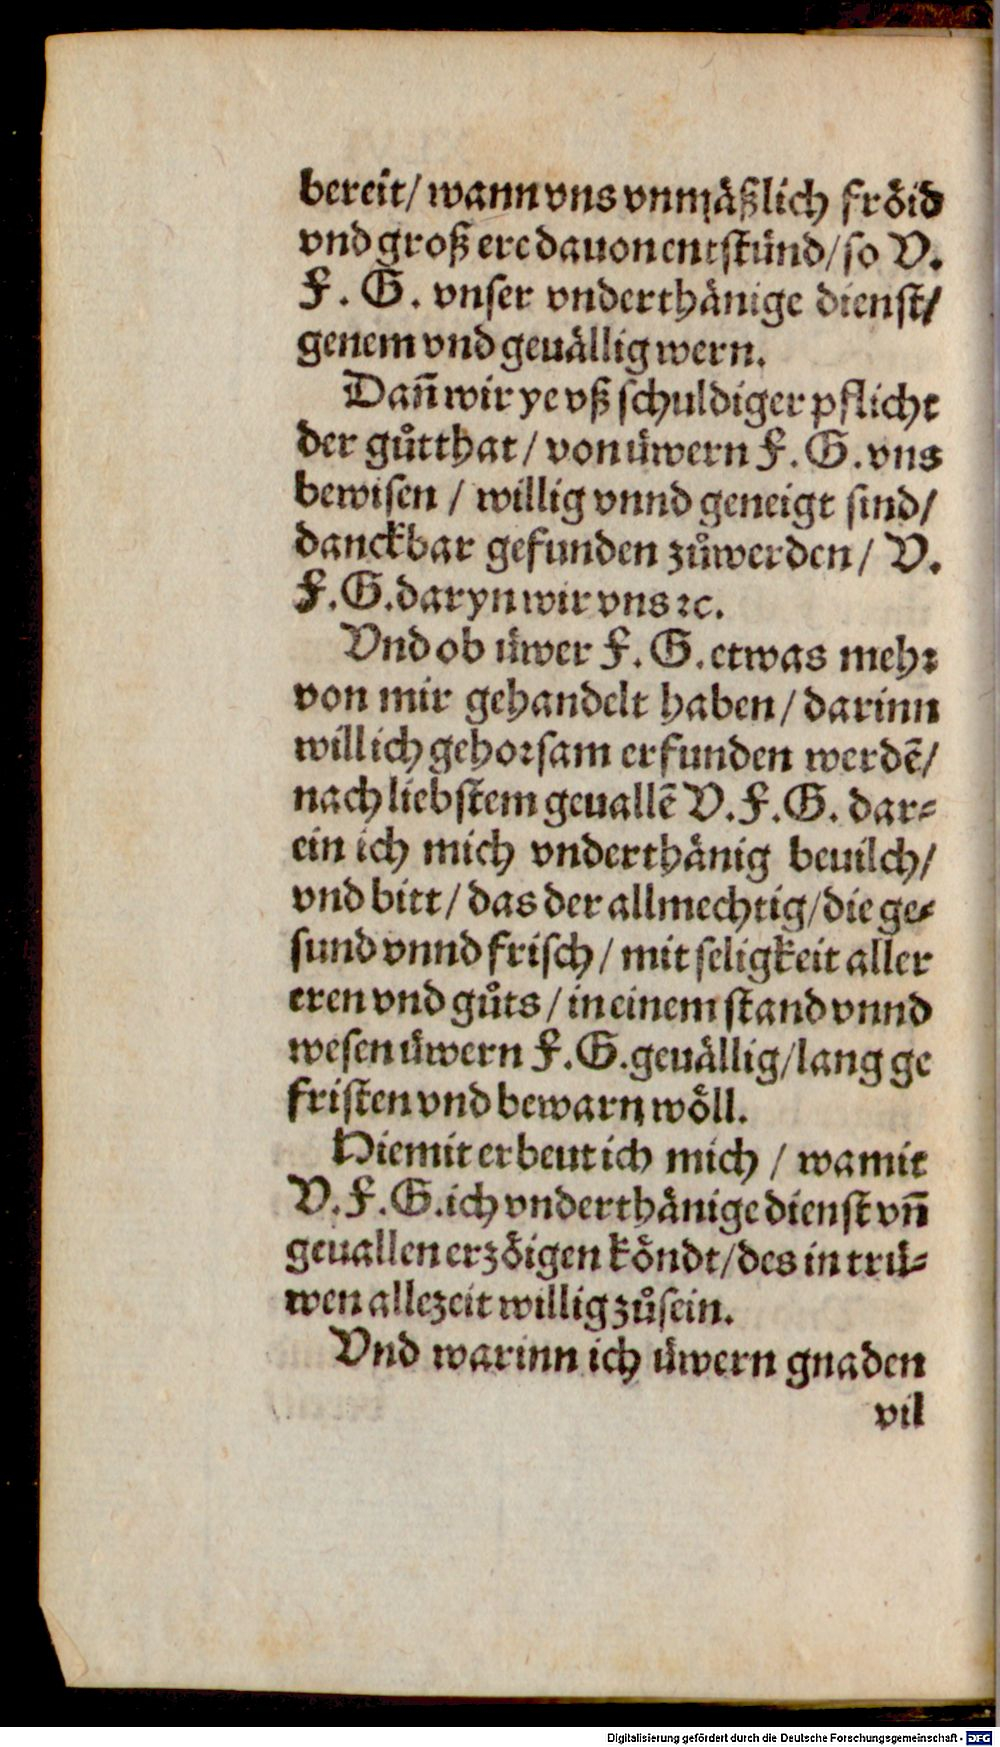 bereit/ wann vns vnmäßlich frőid
vnd groß ere dauon entstünd/ so V.
F. G. vnser vnderthänige dienst/
genem vnd geuällig wern.
Dañ wir ye vß schuldiger pflicht
der gůtthat / von üwern F. G. vns
bewisen / willig vnnd geneigt sind/
danckbar gefunden zůwerden/ V.
F. G. daryn wir vns ꝛc.
Vnd ob üwer F. G. etwas mehꝛ
von mir gehandelt haben/ darinn
will ich gehoꝛsam erfunden werdẽ/
nach liebstem geuallẽ V. F. G. dar⸗
ein ich mich vnderthänig beuilch/
vnd bitt/ das der allmechtig/ die ge⸗
sund vnnd frisch/ mit seligkeit aller
eren vnd gůts/ in einem stand vnnd
wesen üwern F. G. geuällig/ lang ge
fristen vnd bewarn wöll.
Hiemit erbeut ich mich / wamit
V. F. G. ich vnderthänige dienst vñ
geuallen erzöigen köndt/ des in trü⸗
wen allezeit willig zůsein.
Vnd warinn ich üwern gnaden
vil
Digitalisierung gefördert durch die Deutsche Forschungsgemeinschaft - DFG